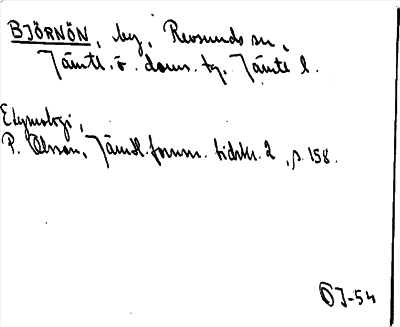 BJÖRNÖN, by, Revsunds sn,
Jämtl. ö. doms. tg, Jämtl l.
Etymologi,
P. Olsson, Jämtl. fornm. tidskr. 2, s. 158.
OJ-54